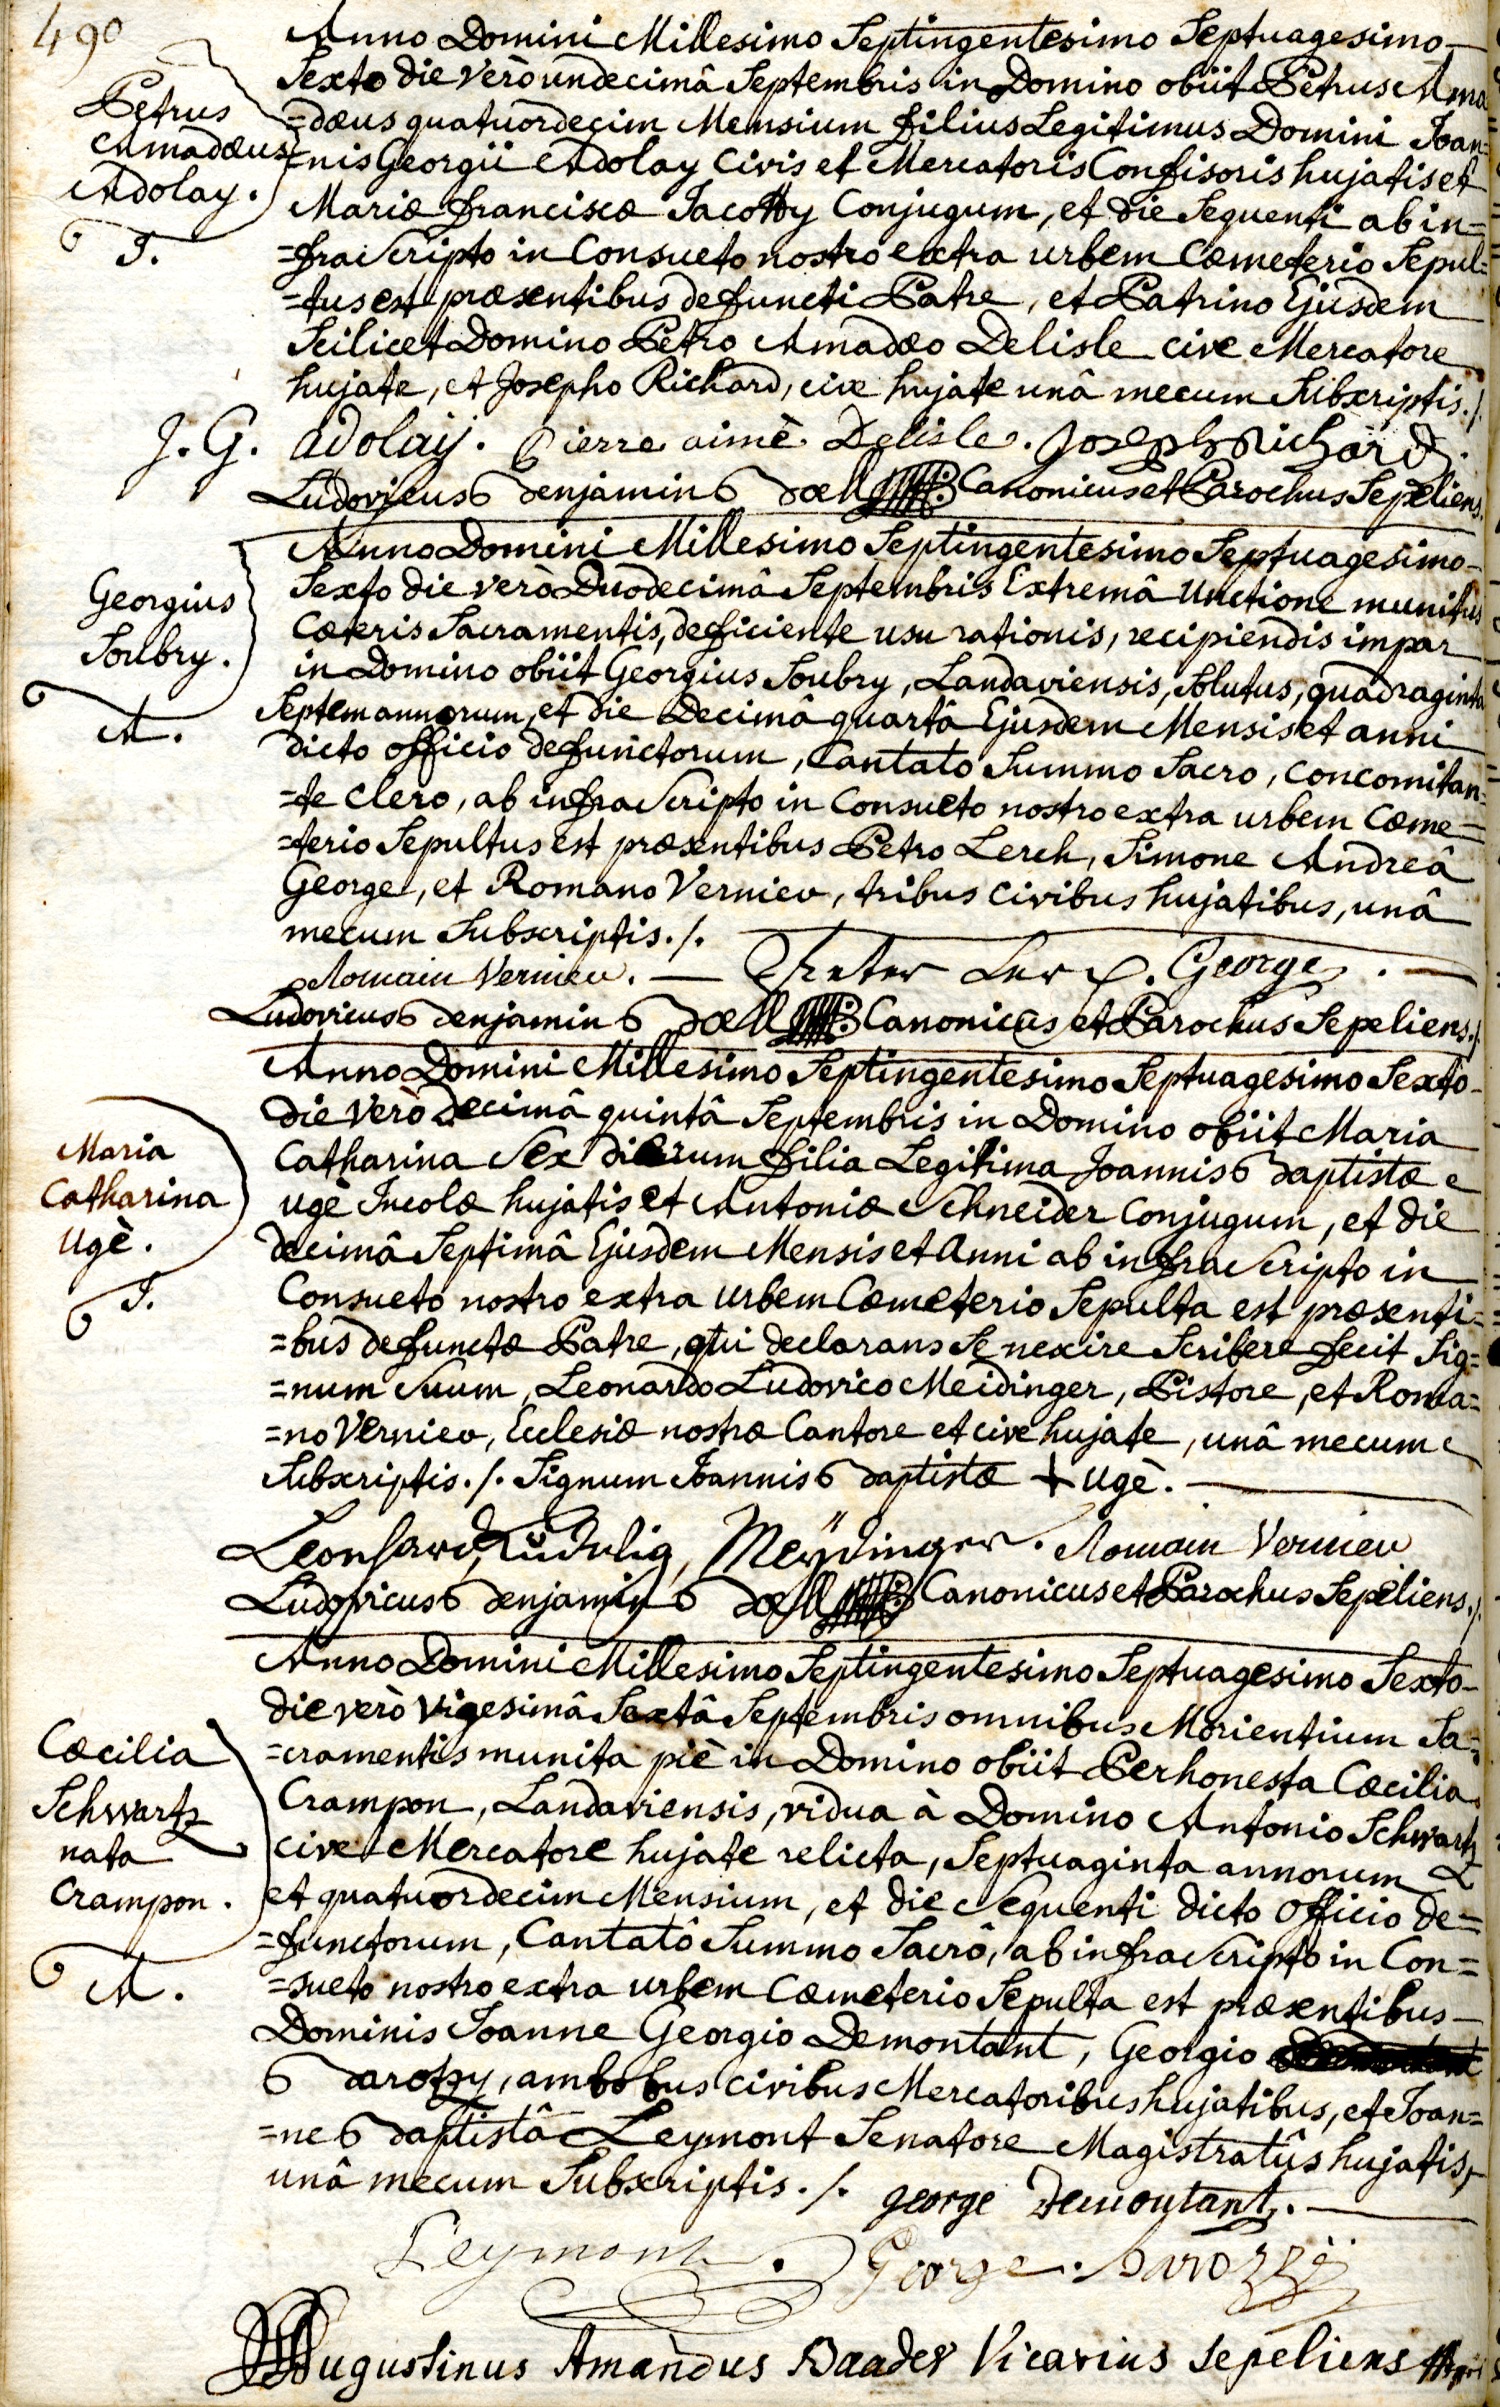 490
Anno Domini Millesimo Septingentesimo Septuagesimo
Sexto die verò undecimâ Septembris in Domino obiit Petrus Ama
=dæus quatuordecim Mensium filius Legitimus Domini Joan=
=nis Georgii Adolay Civis et Mercatoris Confisoris hujatis et
Mariæ franciscæ Jacotty Conjugum, et die Sequenti ab in=
=frascripto in Consueto nostro extra urbem Cœmeterio Sepul=
=tus est præsentibus defuncti Patre, et Patrino Ejusdem
Scilicet Domino Petro Amadæo Delisle cive Mercatore
hujate, et Josepho Richard, cive hujate unâ mecum Subscriptis./.
Petrus
Amadæus
Adolay.
J.
J. G. adolaÿ. Pierre aimè Delisle. Joseph Richard.
Ludovicus Benjamin Dœll Canonicus et Parochus Sepeliens.
Anno Domini Millesimo Septingentesimo Septuagesimo
Sexto die verò Duodecimâ Septembris Extremâ Unctione munitus
Cæteris Sacramentis, deficiente usu rationis, recipiendis impar
in Domino obiit Georgius Soubry, Landaviensis, Solutus, quadraginta
Septem annorum, et die Decimâ quartâ Ejusdem Mensis et anni
dicto officio defunctorum, Cantato Summo Sacro, concomitan=
=te Clero, ab infrascripto in Consueto nostro extra urbem Cœme=
=terio Sepultus est præsentibus Petro Lerch, Simone Andreâ
George, et Romano Verniev, tribus Civibus hujatibus, unâ
mecum Subscriptis./.
Georgius
Soubry.
A.
Romain Verniev. — Peter Ler George.
Ludovicus Benjamin Dœll Canonicus et Parochus Sepeliens./.
Anno Domini Millesimo Septingentesimo Septuagesimo Sexto
die verò Decimâ quintâ Septembris in Domino obiit Maria
Catharina Sex dierum filia Legitima Joannis Baptistæ
Ugè Incolæ hujatis et Antoniæ Schneider Conjugum, et die
decimâ Septimâ Ejusdem Mensis et Anni ab infrascripto in
Consueto nostro extra urbem Cœmeterio Sepulta est præsenti=
=bus defunctæ Patre, qui declarans Se nescire Scribere fecit Sig=
=num Suum, Leonardo Ludovico Meidinger, Pistore, et Roma=
=no Verniev, Ecclesiæ nostræ Cantore et cive hujate, unâ mecum
Subscriptis./. Signum Joannis Baptistæ + Ugè.
Maria
Catharina
Ugè.
J.
Leonhard Ludwig, Meÿdinger. Romain Verniev
Ludovicus Benjamin Dœll Canonicus et Parochus Sepeliens./.
Anno Domini Millesimo Septingentesimo Septuagesimo Sexto
die verò vigesimâ Sextâ Septembris omnibus Morientium Sa=
=cramentis munita piè in Domino obiit Perhonesta Cæcilia
Crampon, Landaviensis, vidua à Domino Antonio Schwartz
cive Mercatore hujate relicta, Septuaginta annorum
et quatuordecim Mensium, et die Sequenti dicto officio de=
=functorum, Cantatô Summo Sacrô, ab infrascripto in Con=
=sueto nostro extra urbem Cœmeterio Sepulta est præsentibus
Dominis Joanne Georgio Demontant, Georgio
Barotzy, ambobus civibus Mercatoribus hujatibus, et Joan=
=ne Baptistâ Leymont Senatore Magistratûs hujatis,
unâ mecum Subscriptis./. george Demoutant.
Cæcilia
Schwartz
nata
Crampon.
A.
Leymont. George Barozzÿ
Augustinus Amandus Baader Vicarius sepeliens